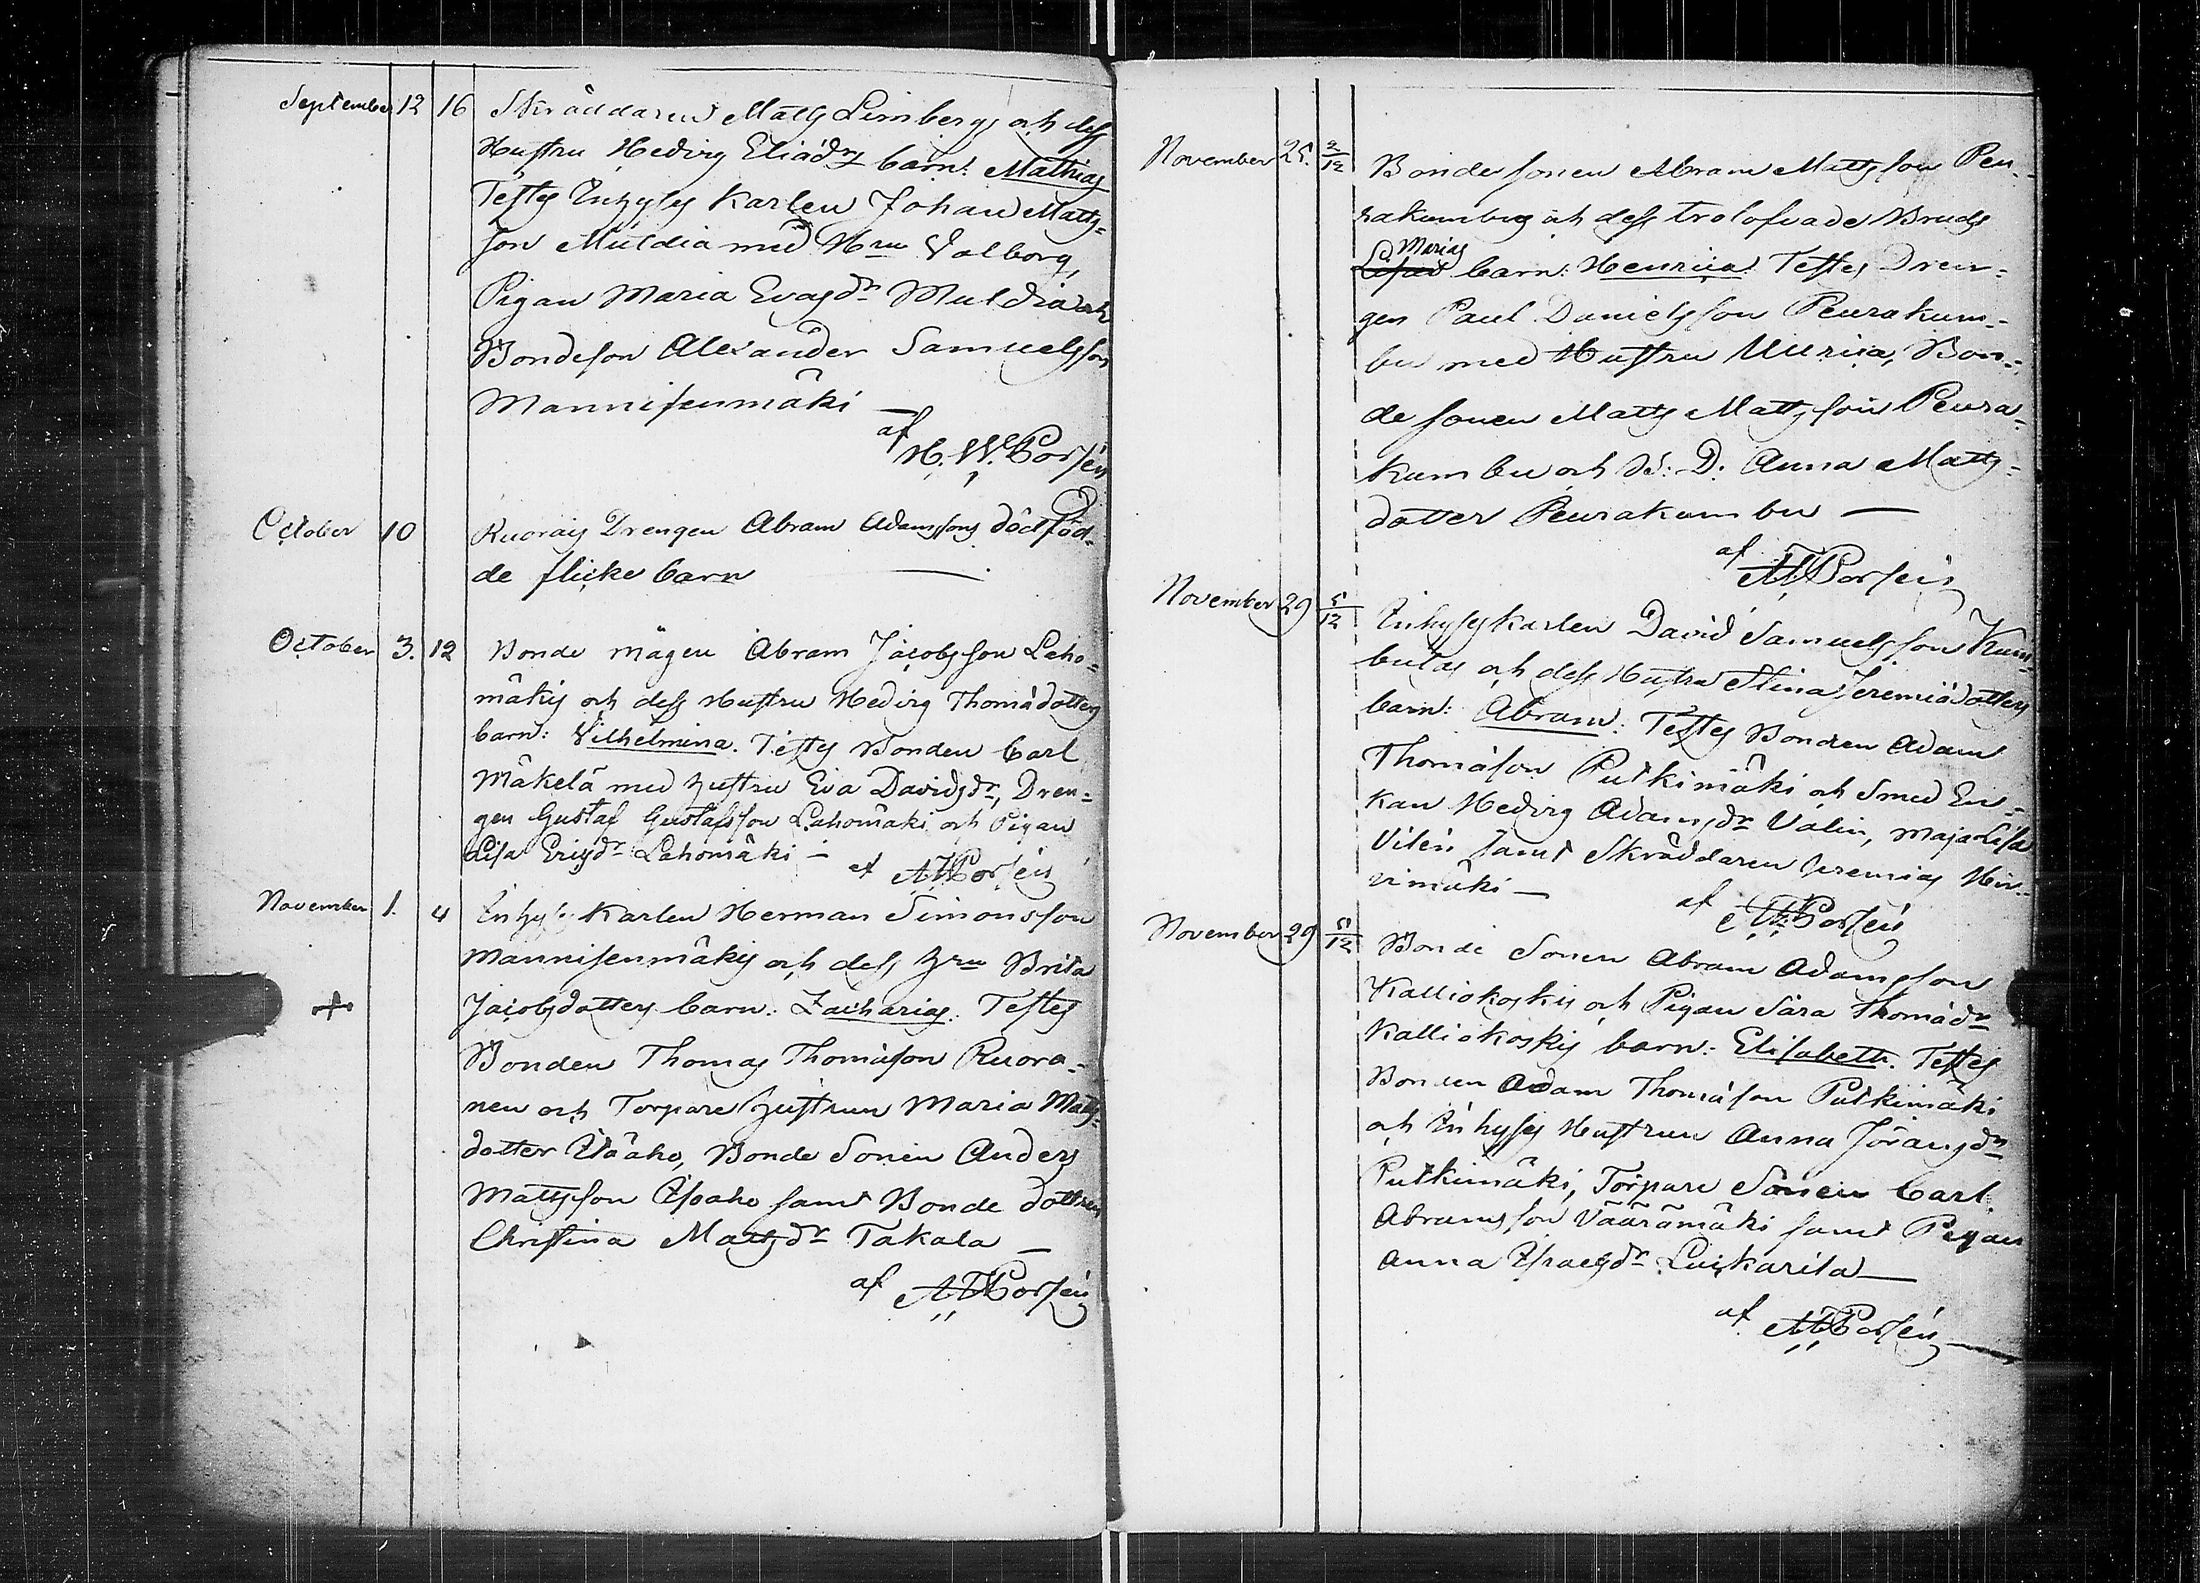 September 12 16 Skräddaren Matts Limbergs och dess
Hustru Hedvig Eliædrs barn: Mathias
Testes Inhyses Karlen Johan Matts-
son Muldia med Hru Valborg,
Pigan Maria Evasdr Muldia och
Bondeson Alexander Samuelsson
Mannisenmäki —
af
H. W. Porsén
October 10 Ruorais Drengen Abram Adamssons dödföd-
de flicke barn
October 3. 12 Bonde mågen Abram Jacobsson Laho-
mäkis och dess Hustru Hedvig Thomædotters
barn: Vilhelmina. Testes Bonden Carl
Mäkelä med hustru Eva Davidsdr, Dren-
gen Gustaf Gustafsson Lahomäki och Pigan
Lisa Ericsdr Lahomäki —
af Porsén
November 1. 4 Inhyses Karlen Herman Simonsson
Mannisenmäkis och dess Hru Brita
Jacobsdotters barn: Zacharias. Testes
Bonden Thomas Thomæson Ruora-
nen och Torpare hustrun Maria Matts-
dotter Isoaho, Bonde Sonen Anders
Mattsson Isoaho samt Bonde dottren
Christina Mattsdr Takala —
af Porsén
November 25. 2/12 Bonde sonen Abram Mattsson Peu-
rakumbus och dess trolofvade Bruds
Marias
barn: Henrica. Testes Dren-
gen Paul Danielsson Peurakum-
bu med Hustru Ulrica, Bon-
de sonen Matts Mattsson Peura-
kumbu och Bd: D. Anna Matts-
dotter Peurakumbu —
af
Porsén
November 29 5/12 Inhyseskarlen David Samuelsson Kum-
bulas och dess Hustru Stina Jeremiædotters
barn: Abram. Testes Bonden Adam
Thomæson Putkimäki och Smed En-
kan Hedvig Adamsdr Valin, Maja Lisa
Vilén samt Skräddaren Jeremias Hir-
vimäki —
af
Porsén
November 29 5/12 Bonde Sonen Abram Adamsson
Kalliokoskis och Pigan Sara Thomædr
Kalliokoskis barn: Elisabeth. Testes
Bonden Adam Thomæson Putkimäki
och Inhyses Hustrun Anna Jöransdr
Putkimäki, Torpare Sonen Carl
Abramsson Väärämäki samt Pigan
Anna Isracsdr Luiskarila —
af
Porsén